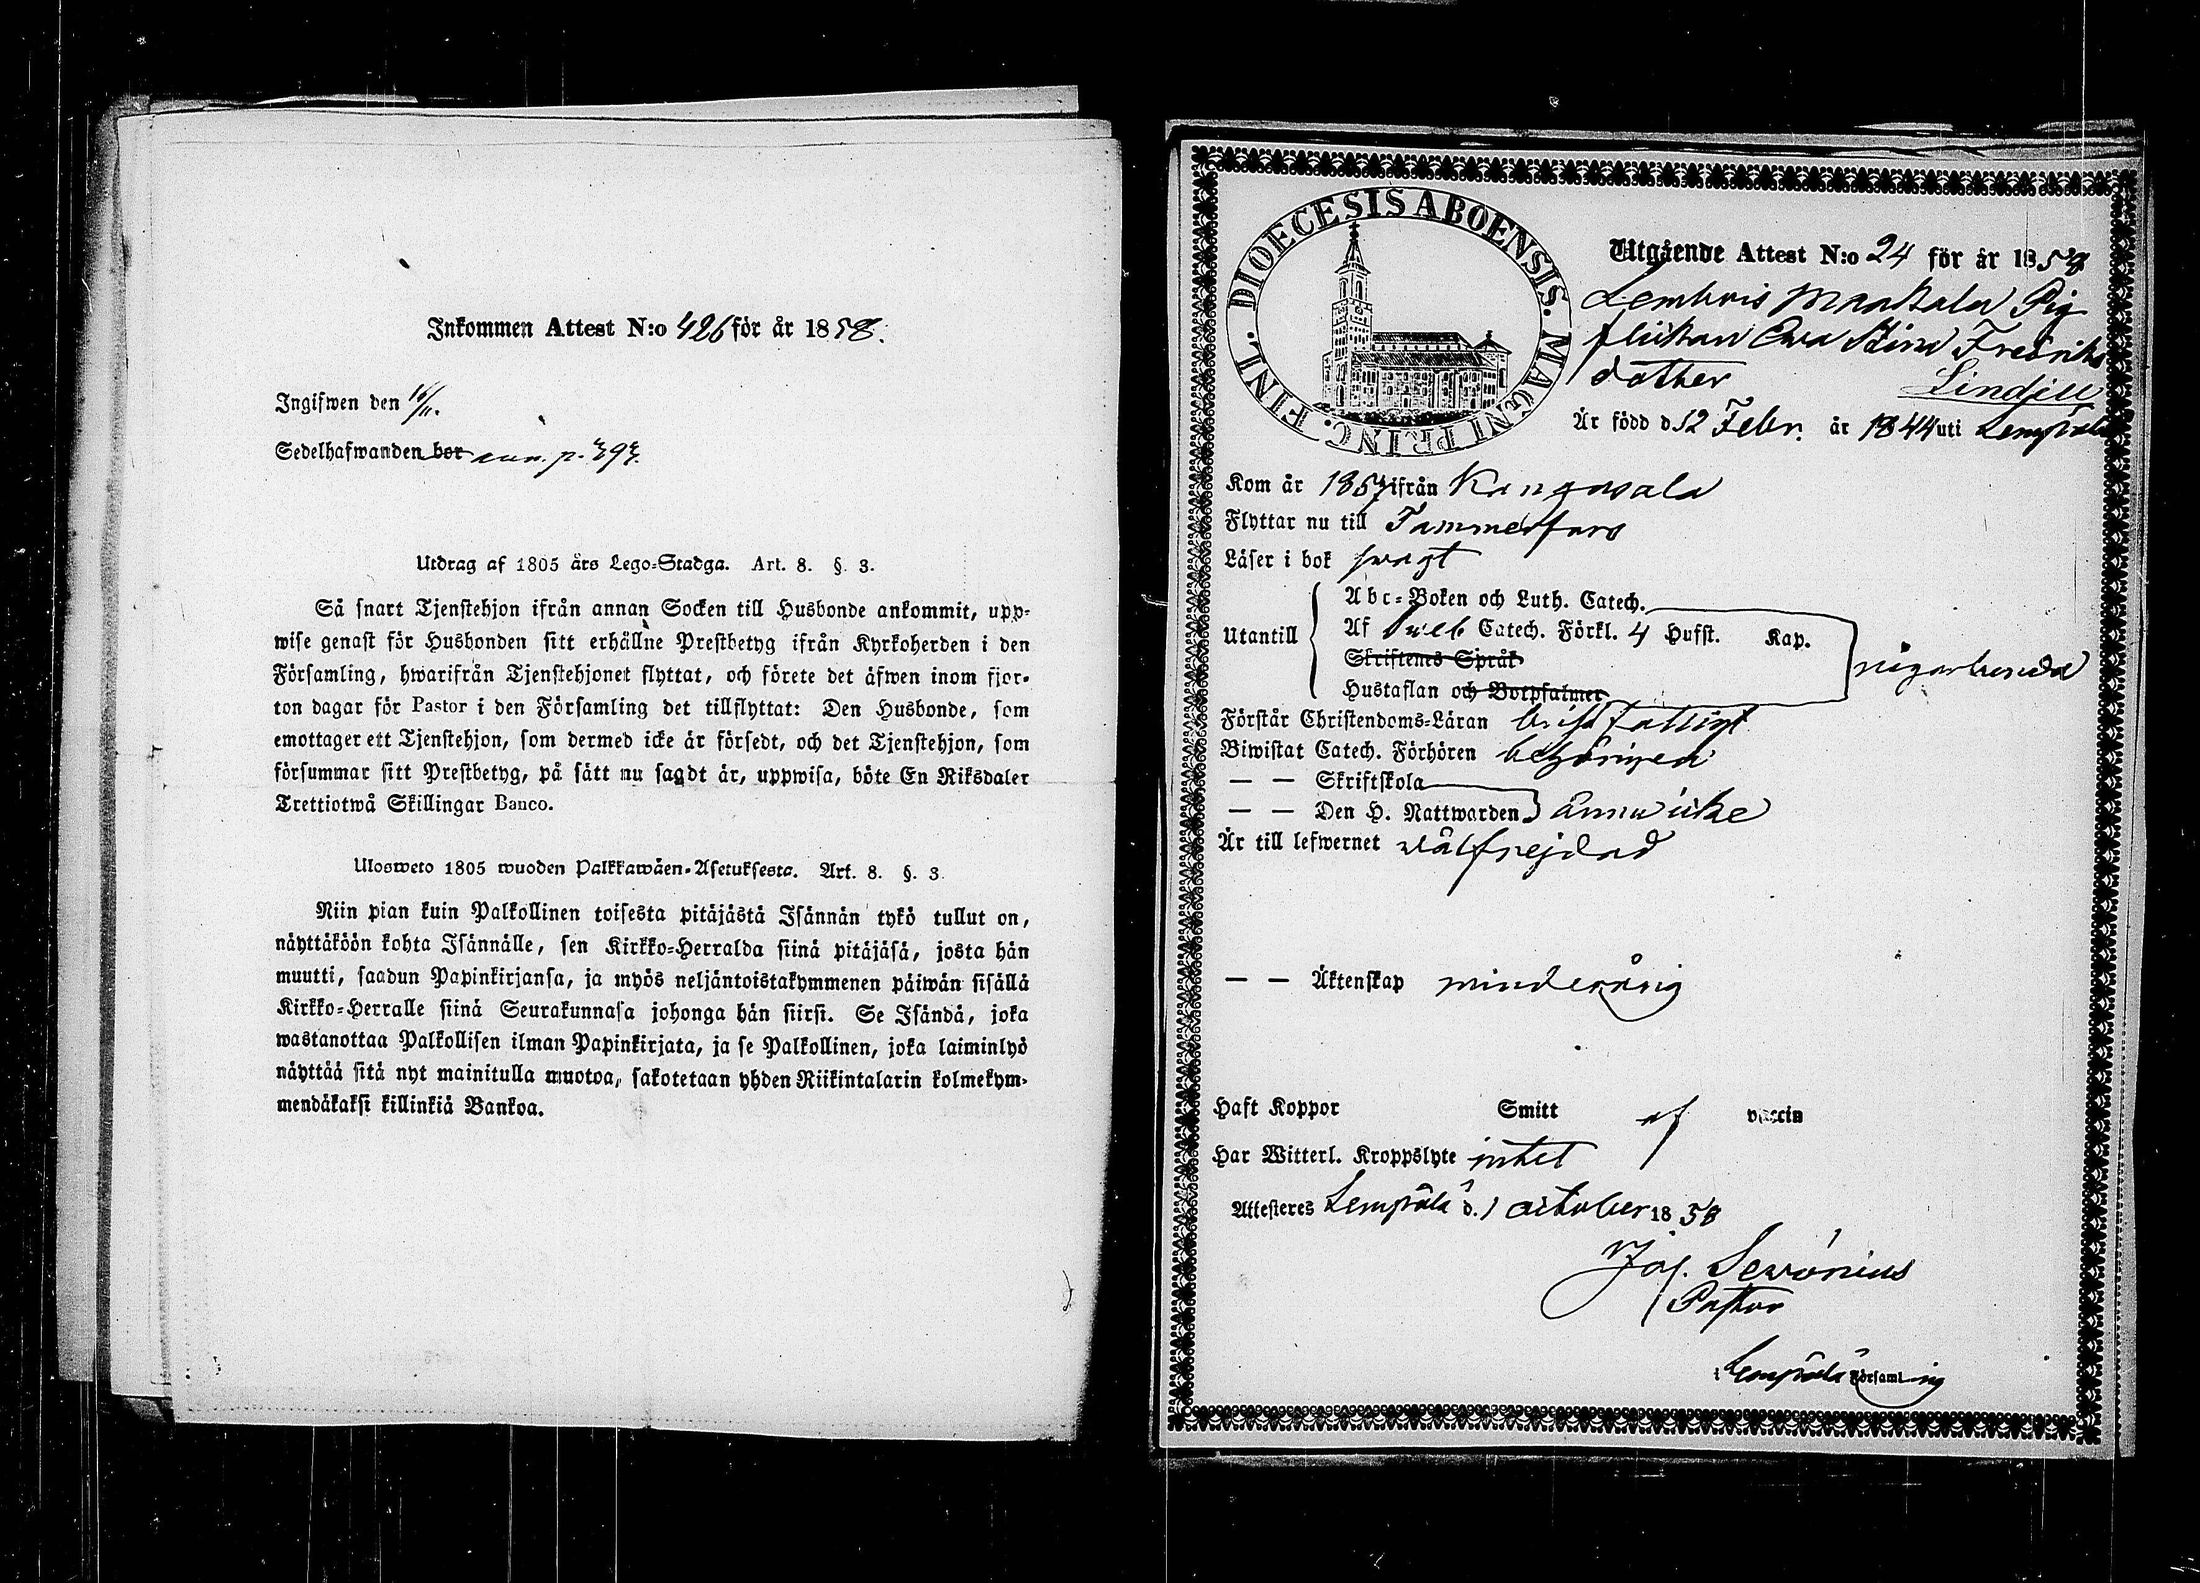 Inkommen Attest N:o 426 för år 1858.
Ingifwen den 16/11.
Sedelhafwanden bor ann. p. 393.
Utdrag af 1805 års Lego-Stadga. Art. 8. §. 3.
Så snart Tjenstehjon ifrån annan Socken till Husbonde ankommit, upp-
wise genast för Husbonden sitt erhållne Prestbetyg ifrån Kyrkoherden i den
Församling, hwarifrån Tjenstehjonet flyttat, och förete det äfwen inom fjor-
ton dagar för Pastor i den Församling det tillflyttat: Den Husbonde, som
emottager ett Tjenstehjon, som dermed icke är försedt, och det Tjenstehjon, som
försummar sitt Prestbetyg, på sätt nu sagdt är, uppwisa, böte En Riksdaler
Trettiotwå Skillingar Banco.
Ulosweto 1805 wuoden Palkkawäen-Asetuksesta. Art. 8. §. 3.
Niin pian kuin Palkollinen toisesta pitäjästä Isännän tykö tullut on,
näyttäköön kohta Isännälle, sen Kirkko-Herralda siinä pitäjäsä, josta hän
muutti, saadun Papinkirjansa, ja myös neljäntoistakymmenen päiwän sisällä
Kirkko-Herralle siinä Seurakunnasa johonga hän siirsi. Se Isändä, joka
wastanottaa Palkollisen ilman Papinkirjata, ja se Palkollinen, joka laiminlyö
näyttää sitä nyt mainitulla muotoa, sakotetaan yhden Riikintalarin kolmekym-
mendäkaksi killinkiä Bankoa.
DIOECESIS ABOENSIS. MAGNI PRINC. FINL.
Utgående Attest N:o 24 för år 1858
Lembois Mantala Pig
flickan Eva Stina Fredriks
dotter Lindell
Är född d 12 Febr. år 1844 uti Lempäla
Kom år 1857 ifrån Kangasala
Flyttar nu till Tammerfors
Läser i bok swagt
Utantill
Abc-Boken och Luth. Catech.
Af Sweb Catech. Förkl. 4 Hufst. Kap.
Skriftenes Språk
Hustaflan och Botpsalmer
någorlunda
Förstår Christendoms-Läran bristfälligt
Biwistat Catech. Förhören behörigen
— — Skriftskola
— — Den H. Nattwarden ännu icke
Är till lefwernet wälfrejdad
— — Äktenskap minderårig
Haft Koppor Smitt af vaccin
Har Witterl. Kroppslyte intet
Attesteres Lempälä d. 1 October 1858
Jos. Sevónius
Pastor
i Lempälä Församling